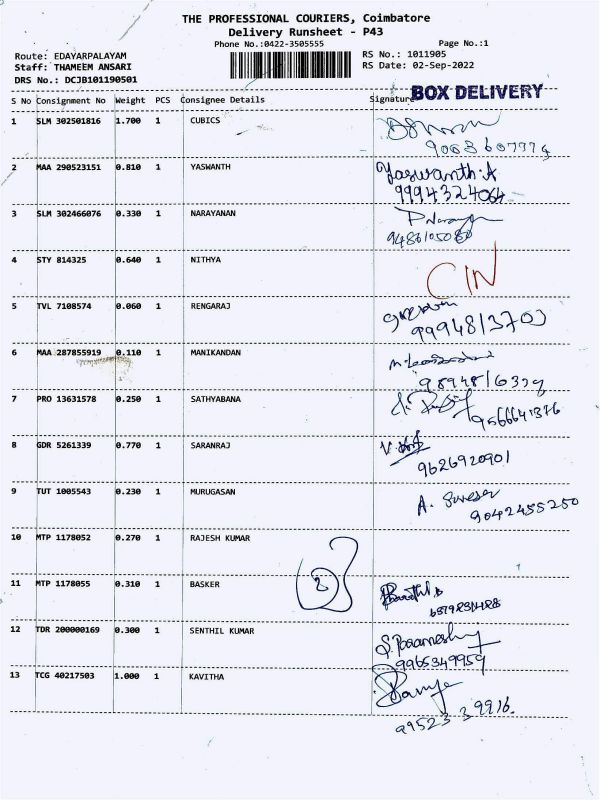 THE PROFESSIONAL COURIERS, Coimbatore
Delivery Runsheet - P43
Phone No.:0422-3505555
Page No.:1
Route: EDAYARPALAYAM
RS No.: 1011905
Staff: THAMEEM ANSARI
RS Date: 02-Sep-2022
DRS No.: DCJB101190501
BOX DELIVERY
S No Consignment No Weight PCS Consignee Details Signature
1 SLM 302501816 1.700 1 CUBICS
2 MAA 290523151 0.810 1 YASWANTH Yaswanth.A
9994324064
3 SLM 302466076 0.330 1 NARAYANAN
9486105080
4 STY 814325 0.640 1 NITHYA CIN
5 TVL 7108574 0.060 1 RENGARAJ
9994813703
6 MAA 287855919 0.110 1 MANIKANDAN
7 PRO 13631578 0.250 1 SATHYABANA
9566641376
8 GDR 5261339 0.770 1 SARANRAJ
9626920901
9 TUT 1005543 0.230 1 MURUGASAN A. Suresh
9042455250
10 MTP 1178052 0.270 1 RAJESH KUMAR
11 MTP 1178055 0.310 1 BASKER
12 TDR 200000169 0.300 1 SENTHIL KUMAR
9965349959
13 TCG 40217503 1.000 1 KAVITHA